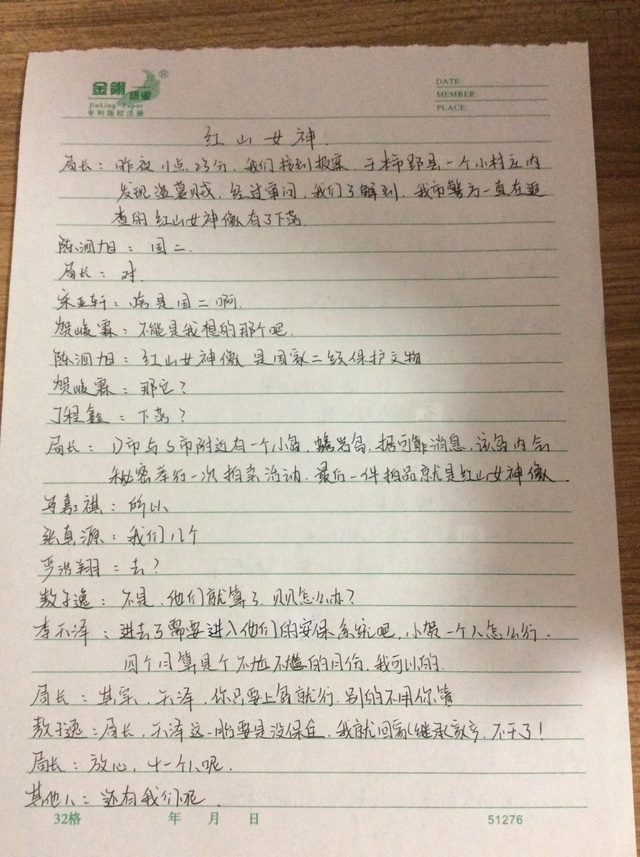 金翎
JinLing Paper
专利版权注册
DATE:
MEMBER
PLACE:
红山女神
局长：昨夜11点23分，我们接到报案，于柿野县一个小村庄内
发现盗墓贼，经过审问，我们了解到，我市警方一直在追
查的红山女神像有了下落
陈泗旭：国二.
局长：对.
宋亚轩：啥是国二啊.
贺峻霖：不能是我想的那个吧.
陈泗旭：红山女神像 是国家二级保护文物
贺峻霖：那它？
丁程鑫：下落？
局长：D市与S市附近有一个小岛，蟾岩岛，据可靠消息，该岛内会
秘密举行一次拍卖活动，最后一件拍品就是红山女神像.
马嘉祺：所以
张真源：我们几个
严浩翔：去？
敖子逸：不是，他们就算了，贝贝怎么办？
李天泽：进去了需要进入他们的安保系统吧，小贺一个人怎么行.
四个月算是个不尴不尬的月份，我可以的.
局长：其实，天泽，你只要上岛就行，别的不用你管
敖子逸：局长，天泽这一胎要是没保住，我就回家继承家产，不干了！
局长：放心，十一个人呢.
其他人：还有我们呢.
32格 年 月 日 51276